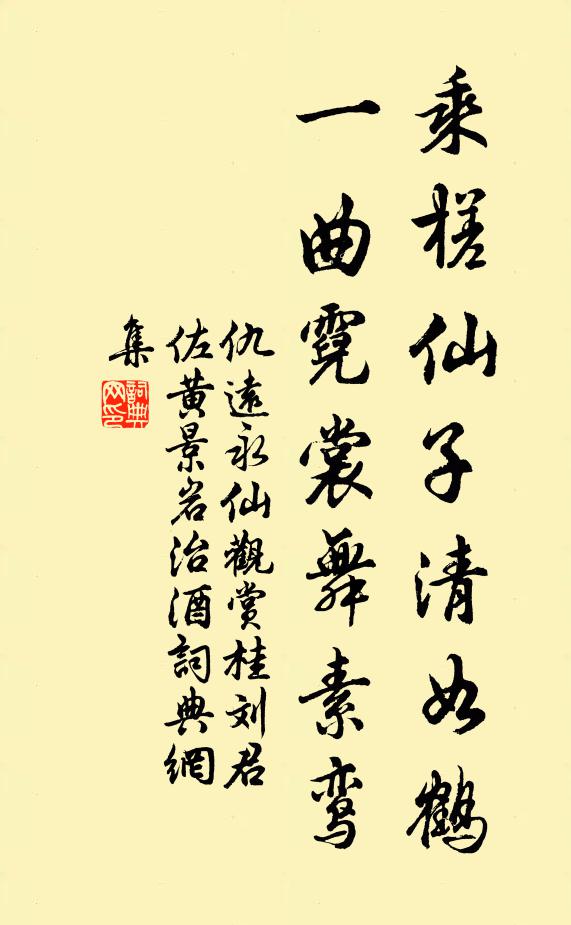 乘槎仙子清如鹤
一曲霓裳舞素鸾
仇遠永仙觀賞桂刘君
佐黄景岩治酒詞典網
集
詞典網印